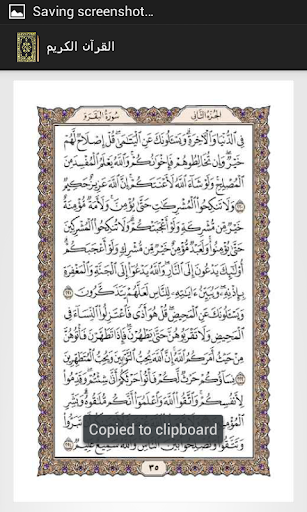 Saving screenshot...
القرآن الكريم
الجزء الثاني
سورة البقرة
فِي الدُّنْيَا وَالْآخِرَةِ وَيَسْـَٔلُونَكَ عَنِ الْيَتَٰمَىٰ قُلْ إِصْلَاحٌ لَّهُمْ
خَيْرٌ وَإِن تُخَالِطُوهُمْ فَإِخْوَٰنُكُمْ وَاللَّهُ يَعْلَمُ الْمُفْسِدَ مِنَ
الْمُصْلِحِ وَلَوْ شَآءَ اللَّهُ لَأَعْنَتَكُمْ إِنَّ اللَّهَ عَزِيزٌ حَكِيمٌ
٢٢٠ وَلَا تَنكِحُوا الْمُشْرِكَٰتِ حَتَّىٰ يُؤْمِنَّ وَلَأَمَةٌ مُّؤْمِنَةٌ
خَيْرٌ مِّن مُّشْرِكَةٍ وَلَوْ أَعْجَبَتْكُمْ وَلَا تُنكِحُوا الْمُشْرِكِينَ
حَتَّىٰ يُؤْمِنُوا وَلَعَبْدٌ مُّؤْمِنٌ خَيْرٌ مِّن مُّشْرِكٍ وَلَوْ أَعْجَبَكُمْ
أُولَٰٓئِكَ يَدْعُونَ إِلَى النَّارِ وَاللَّهُ يَدْعُوٓا إِلَى الْجَنَّةِ وَالْمَغْفِرَةِ
بِإِذْنِهِ وَيُبَيِّنُ ءَايَٰتِهِ لِلنَّاسِ لَعَلَّهُمْ يَتَذَكَّرُونَ ٢٢١
وَيَسْـَٔلُونَكَ عَنِ الْمَحِيضِ قُلْ هُوَ أَذًى فَاعْتَزِلُوا النِّسَآءَ فِي
الْمَحِيضِ وَلَا تَقْرَبُوهُنَّ حَتَّىٰ يَطْهُرْنَ فَإِذَا تَطَهَّرْنَ فَأْتُوهُنَّ
مِنْ حَيْثُ أَمَرَكُمُ اللَّهُ إِنَّ اللَّهَ يُحِبُّ التَّوَّٰبِينَ وَيُحِبُّ الْمُتَطَهِّرِينَ
٢٢٢ نِسَآؤُكُمْ حَرْثٌ لَّكُمْ فَأْتُوا حَرْثَكُمْ أَنَّىٰ شِئْتُمْ وَقَدِّمُوا
لِأَنفُسِكُمْ وَاتَّقُوا اللَّهَ وَاعْلَمُوٓا أَنَّكُم مُّلَٰقُوهُ وَبَشِّرِ
وَتَتَّقُوا وَتُصْلِحُوا بَيْنَ النَّاسِ وَاللَّهُ سَمِيعٌ عَلِيمٌ ٢٢٤
Copied to clipboard
٣٥